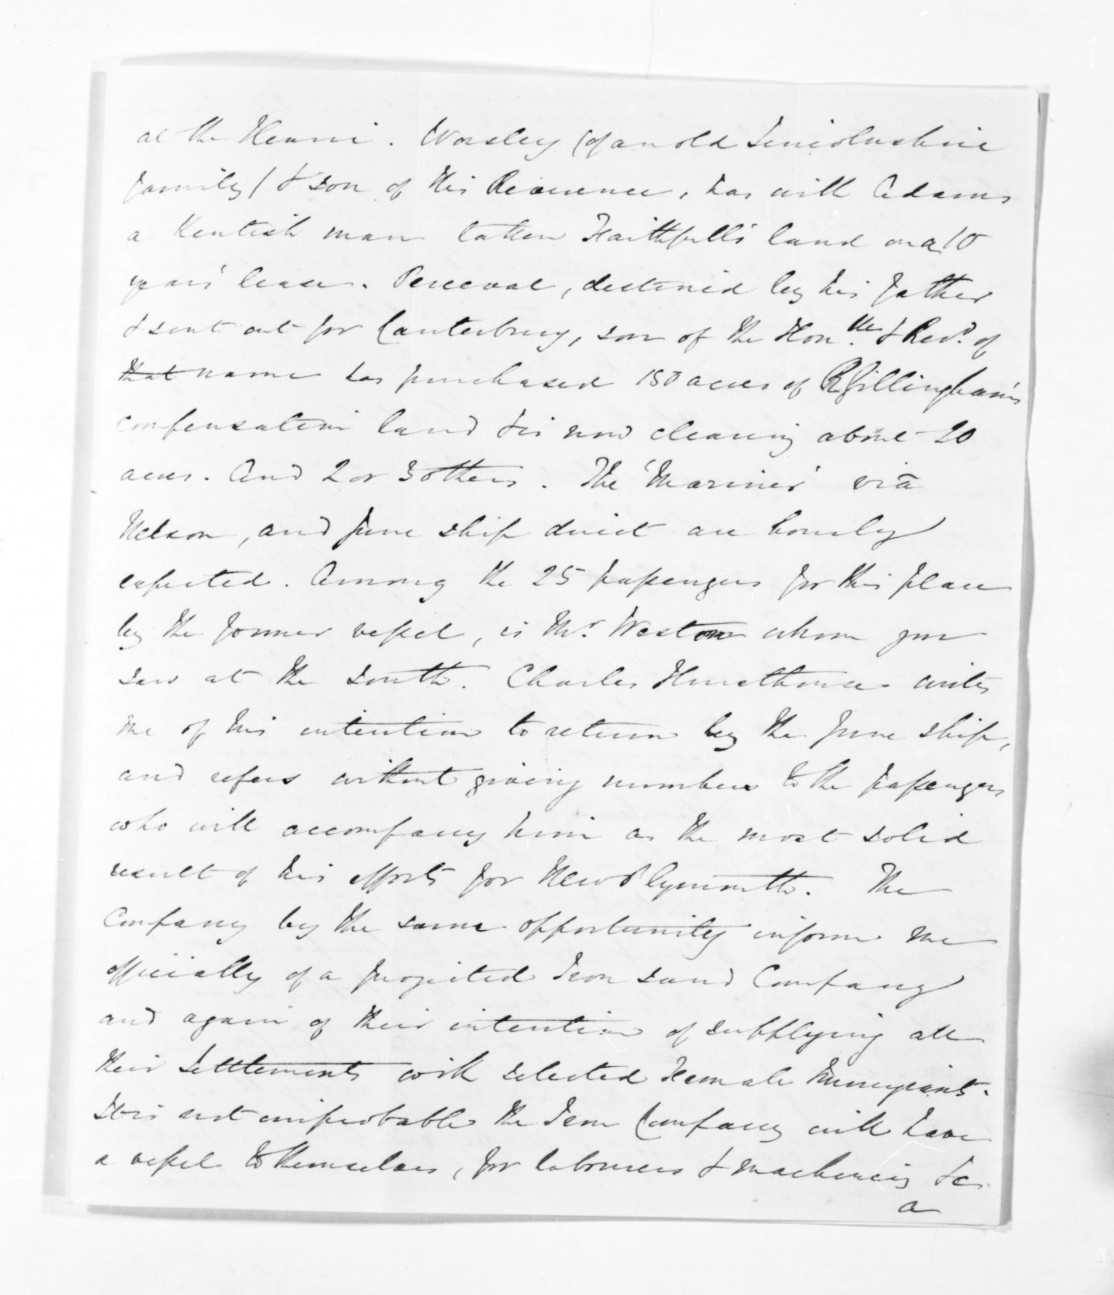 at the Henui. Worsley (of an old Lincolnshire
family) & son of His Reverence, has with Adams
a Kentish man taken Faithfull's land on a 10
years' lease. Perceval, destined by his father
& sent out for Canterbury, son of the Honble & Revd of
that name has purchased 150 acres of R Gillingham's
compensation land & is now clearing about 20
acres. And 2 or 3 others. The 'Mariner' viâ
Nelson, and June ship direct are hourly
expected. Among the 25 passengers for this place
by the former vessel, is Mr. Weston whom you
saw at the south. Charles Hursthouse writes
me of his intention to return by the June ship,
and refers without giving numbers to the passengers
who will accompany him as the most solid
result of his efforts for New Plymouth. The
Company by the same opportunity inform me
officially of a projected Iron sand Company
and again of their intention of supplying all
their Settlements with selected Female Immigrants.
It is not improbable the Iron Company will have
a vessel to themselves, for laborers & machinery &c.
a